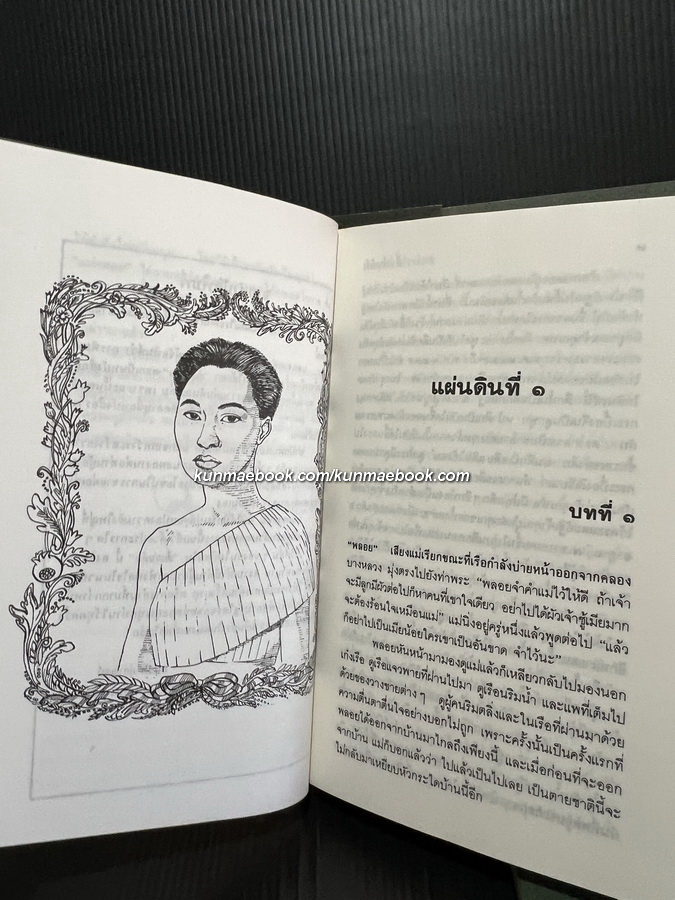 kunmaebook.com/kunmaebook.com
แผ่นดินที่ ๑
บทที่ ๑
"พลอย" เสียงแม่เรียกขณะที่เรือกำลังบ่ายหน้าออกจากคลอง
บางหลวง มุ่งตรงไปยังท่าพระ "พลอยจำคำแม่ไว้ให้ดี ถ้าเจ้า
จะมีลูกมีผัวต่อไปก็หาคนที่เขาใจเดียว อย่าไปได้ผัวเจ้าชู้เมียมาก
จะต้องร้อนใจเหมือนแม่" แม่นิ่งอยู่ครู่หนึ่งแล้วพูดต่อไป "แล้ว
ก็อย่าไปเป็นเมียน้อยใครเขาเป็นอันขาด จำไว้นะ"
พลอยหันหน้ามามองดูแม่แล้วก็เหลียวกลับไปมองนอก
เก๋งเรือ ดูเรือแจวพายที่ผ่านไปมา ดูเรือนริมน้ำ และแพที่เต็มไป
ด้วยของวางขายต่างๆ ดูผู้คนริมตลิ่งและในเรือที่ผ่านมาด้วย
ความตื่นตาตื่นใจอย่างบอกไม่ถูก เพราะครั้งนั้นเป็นครั้งแรกที่
พลอยได้ออกจากบ้านมาไกลถึงเพียงนี้ และเมื่อก่อนที่จะออก
จากบ้าน แม่ก็บอกแล้วว่า ไปแล้วเป็นไปเลย เป็นตายชาตินี้จะ
ไม่กลับมาเหยียบหัวกระไดบ้านนี้อีก